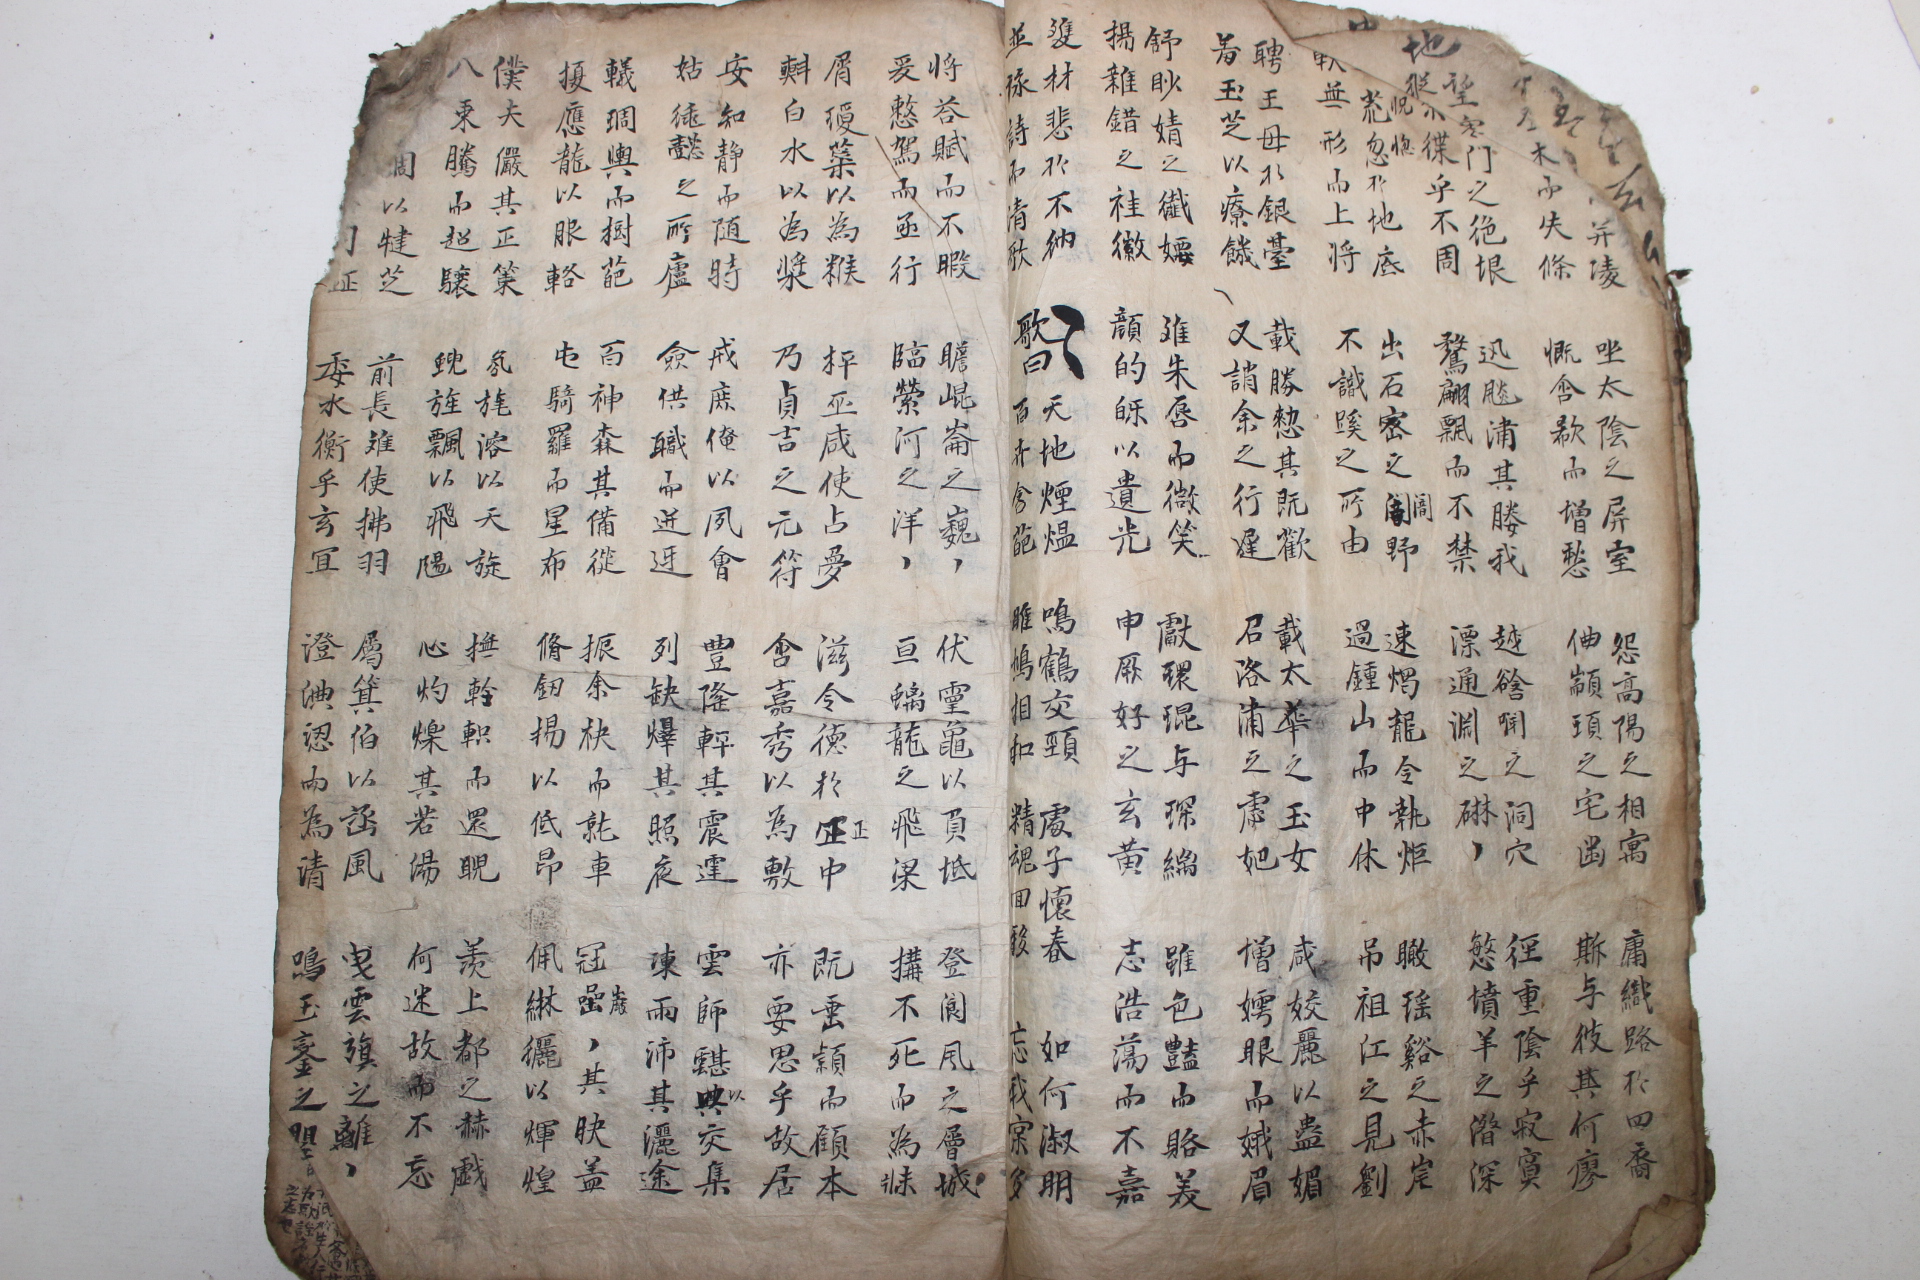 并凌
木而失條
坐太陰之屏室
慨含欷而增愁
怨高陽之相寓
伷顓頊之宅幽
庸織路於四裔
斯与彼其何廖
望寒門之绝垠
緤乎不周
迅飚潚其媵我
鶩翩飄而不禁
越谽㗿之洞穴
漂通淵之碄〻
径重陰乎寂寞
愍墳羊之潛深
荒忽於地底
並形而上将
出石密之闇野
不識蹊之所由
速燭龍令執炬
過鍾山而中休
瞰瑶谿之赤岸
吊祖江之見劉
聘王母於銀䑓
羞玉芝以療饑
載勝憖其既歡
又誚余之行遲
載太華之玉女
召洛浦之虙妃
咸姣麗以蠱媚
增嫮眼而娥眉
舒眇婧之纖腰
揚雜錯之袿徽
雖朱唇而微笑
顔的皪以遺光
獻環琨与琛縭
申厥好之玄黄
雖色豔而賂美
志浩蕩而不嘉
雙材悲於不納
並詠詩而清歌
歌曰
天地煙熅
百卉含葩
鳴鶴交頸
雎鳩相和
處子懷春
精魂回移
如何淑明
忘我寔多
将荅賦而不暇
爰整駕而亟行
瞻崐崙之巍〻
臨縈河之洋〻
伏靈龜以負坻
亘螭龍之飛梁
登閬風之層城
搆不死而為牀
屑瓊蘂以為糇
㪺白水以為漿
枰巫咸使占夢
乃貞吉之元符
滋令德於正中
含嘉秀以為敷
既垂穎而顧本
亦要思乎故居
安知静而随時
姑純懿之所廬
戒庶僚以夙會
僉供職而迸迓
豊隆軯其震霆
列缺爆其照夜
雲師䨴以交集
凍雨沛其灑途
轙琱輿而樹葩
擾應龍以服輅
百神森其備從
屯騎羅而星布
振余袂而就車
脩釼揚以低昂
冠嵒〻其映盖
佩綝纚以輝煌
僕夫儼其正策
八乘騰而超驤
氛旄溶以天旋
蜺旌飄以飛颺
撫軨軹而還睨
心灼爍其若湯
羡上都之赫戲
何迷故而不忘
周以揵芝
前長雉使拂羽
委水衡乎玄冥
屬箕伯以函風
澄淟涊而為清
曳雲旗之離〻
鳴玉鸞之